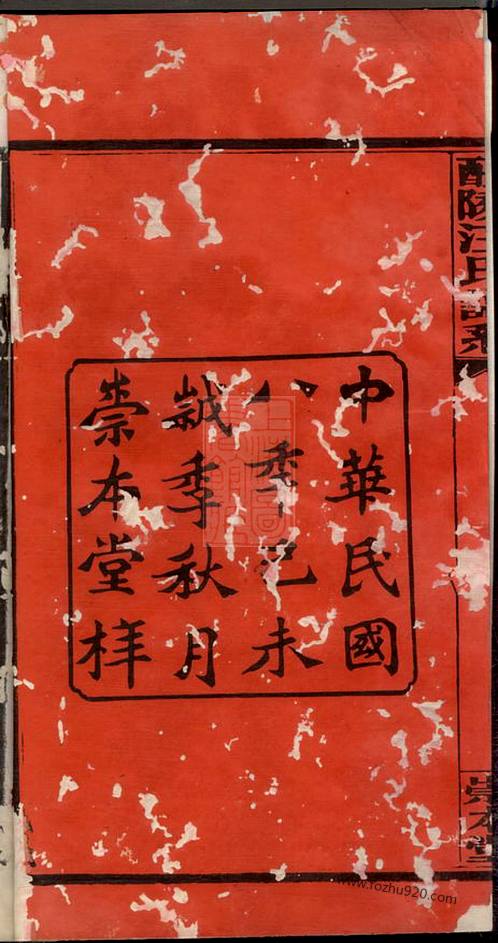 醴陵汪氏譜系
崇本堂
中華民國
八秊己未
歲季秋月
崇本堂梓
www.fozhu920.com